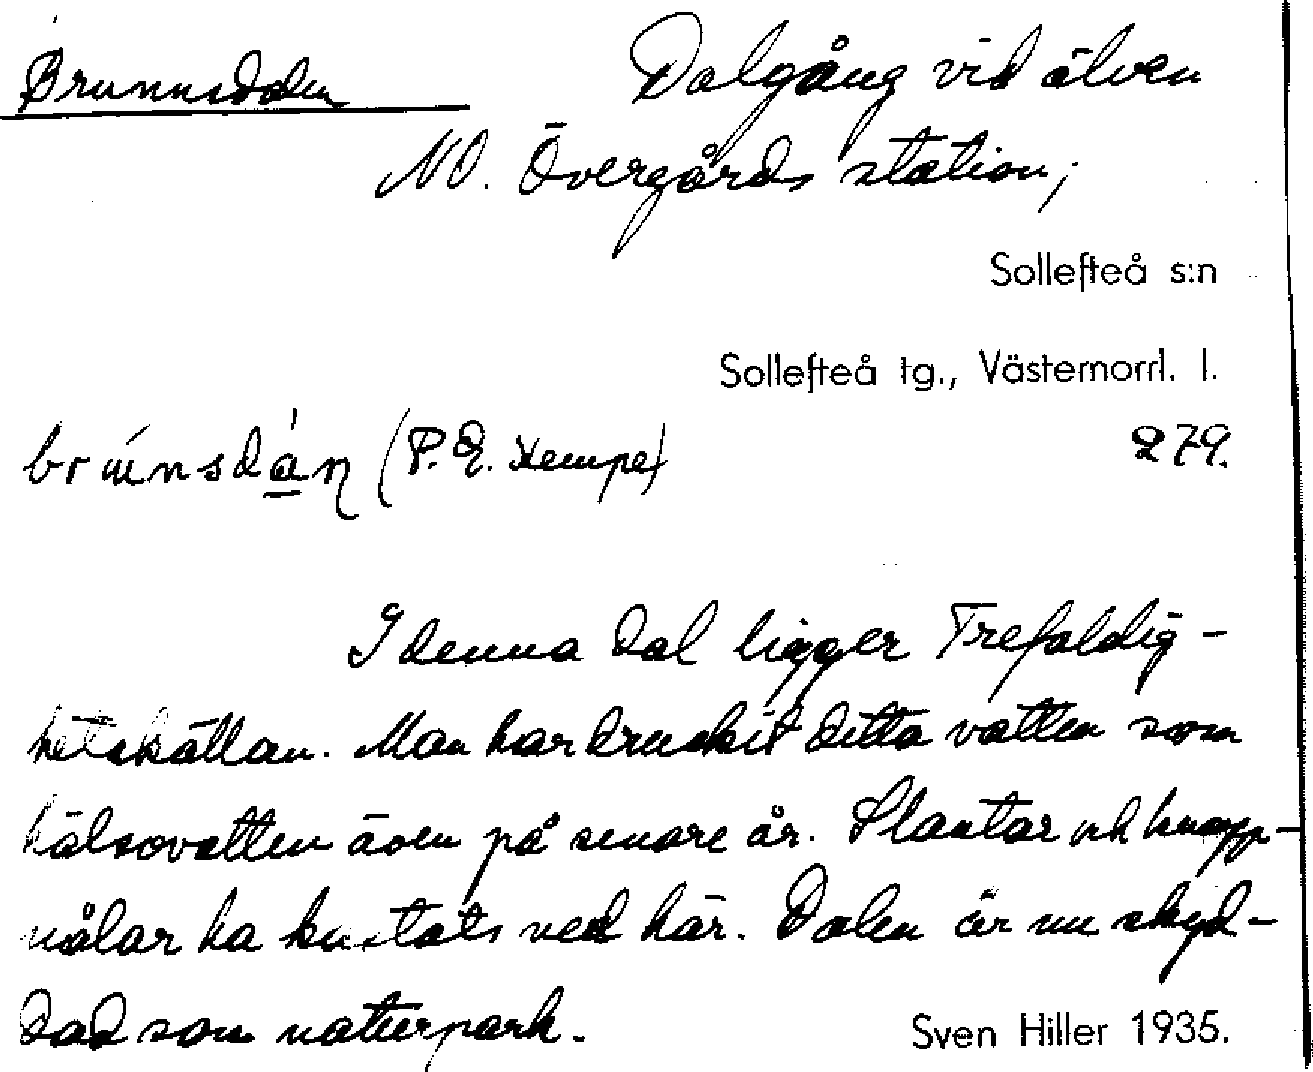 Brunnsdalen
Dalgång vid älven
NO. Övergårds station;
Sollefteå s:n
Sollefteå tg., Västernorrl. l.
(P. E. Kempe)
279.
I denna dal ligger Trefaldig-
hetskällan. Man har druckit detta vatten som
hälsovatten även på senare år. Slantar och knapp-
nålar ha kastats ned här. Dalen är nu skyd-
dad som naturpark.
Sven Hiller 1935.